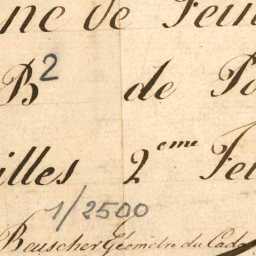 nc de Feui
B² de Po
illes 2eme Feu
1/2500
Beuscher Géomètre du Cada